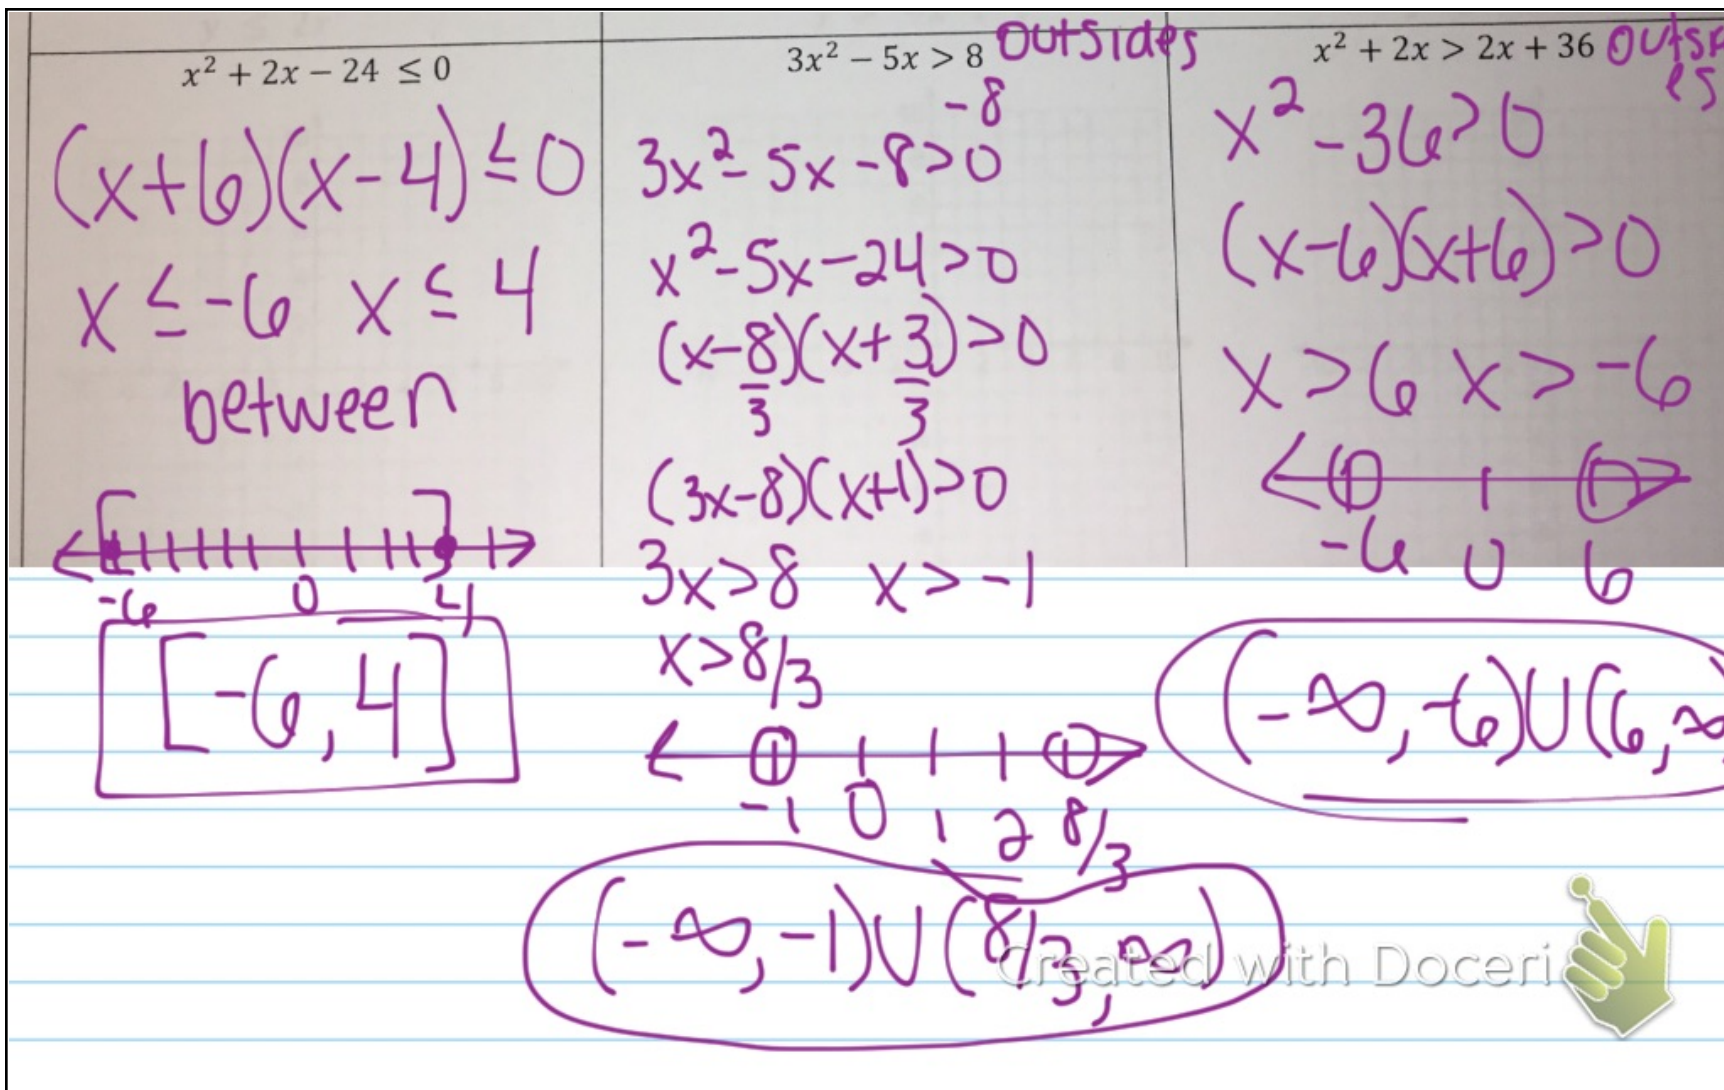 x² + 2x − 24 ≤ 0
(x+6)(x-4) ≤ 0
x ≤ -6 x ≤ 4
between
-6 0 4
[-6, 4]
3x² − 5x > 8 outsides
-8
3x² - 5x - 8 > 0
x² - 5x - 24 > 0
(x-8)(x+3) > 0
3 3
(3x-8)(x+1) > 0
3x > 8 x > -1
x > 8/3
-1 0 1 2 8/3
(-∞, -1)∪(8/3, ∞)
x² + 2x > 2x + 36
es
x² - 36 > 0
(x-6)(x+6) > 0
x > 6 x > -6
-6 0 6
(-∞, -6)∪(6, ∞
Created with Doceri